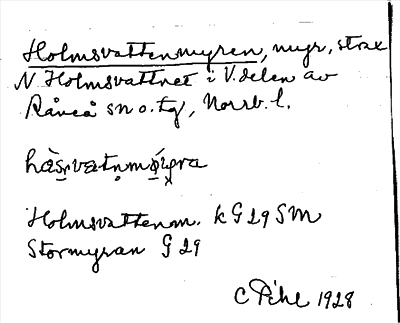 Holmsvattenmyren, myr, strax
N Holmsvattnet i V. delen av
Råneå sn o. tg, Norrb. l.
Holmsvattenm. k G 29 SM
Stormyran G 29
C Pihl 1928